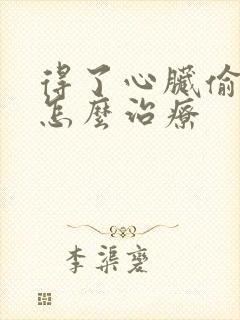 得了心臟偷
怎麼治療
李渠荖